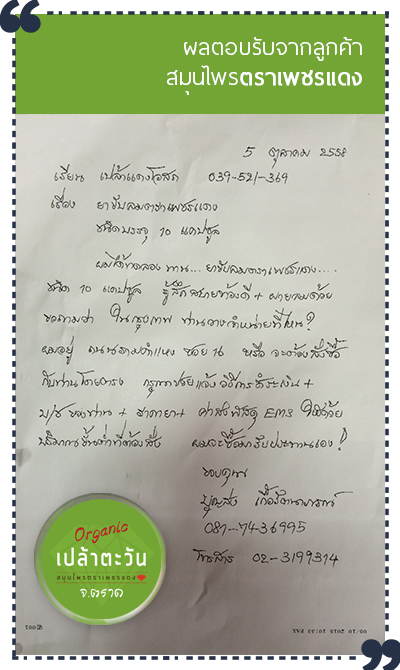 ผลตอบรับจากลูกค้า
สมุนไพรตราเพชรแดง
5 ตุลาคม 2558
เรียน เปล้าแดงโอสถ 039-521-369
เรื่อง ยาขับลมตราเพชรแดง
ชนิดบรรจุ 10 แคปซูล
ผมได้ทดลองทาน... ยาขับลมตราเพชรแดง....
ชนิด 10 แคปซูล รู้สึกสบายท้องดี + ผายลมด้วย
ขอถามว่า ในกรุงเทพ ท่านวางจำหน่ายที่ไหน?
ผมอยู่ ถนนรามคำแหง ซอย 16 หรือ จะต้องสั่งซื้อ
กับท่านโดยตรง กรุณาช่วยแจ้ง วิธีการชำระเงิน +
บ/ช ของท่าน + ราคายา + ค่าส่งพัสดุ EMS ให้ด้วย
ปริมาณขั้นต่ำที่ต้องสั่ง ผมจะซื้อมารับประทานเอง!
ขอบคุณ
081-7436995
โทรสาร 02-3199314
Organic
เปล้าตะวัน
สมุนไพรตราเพชรแดง
จ.ตราด